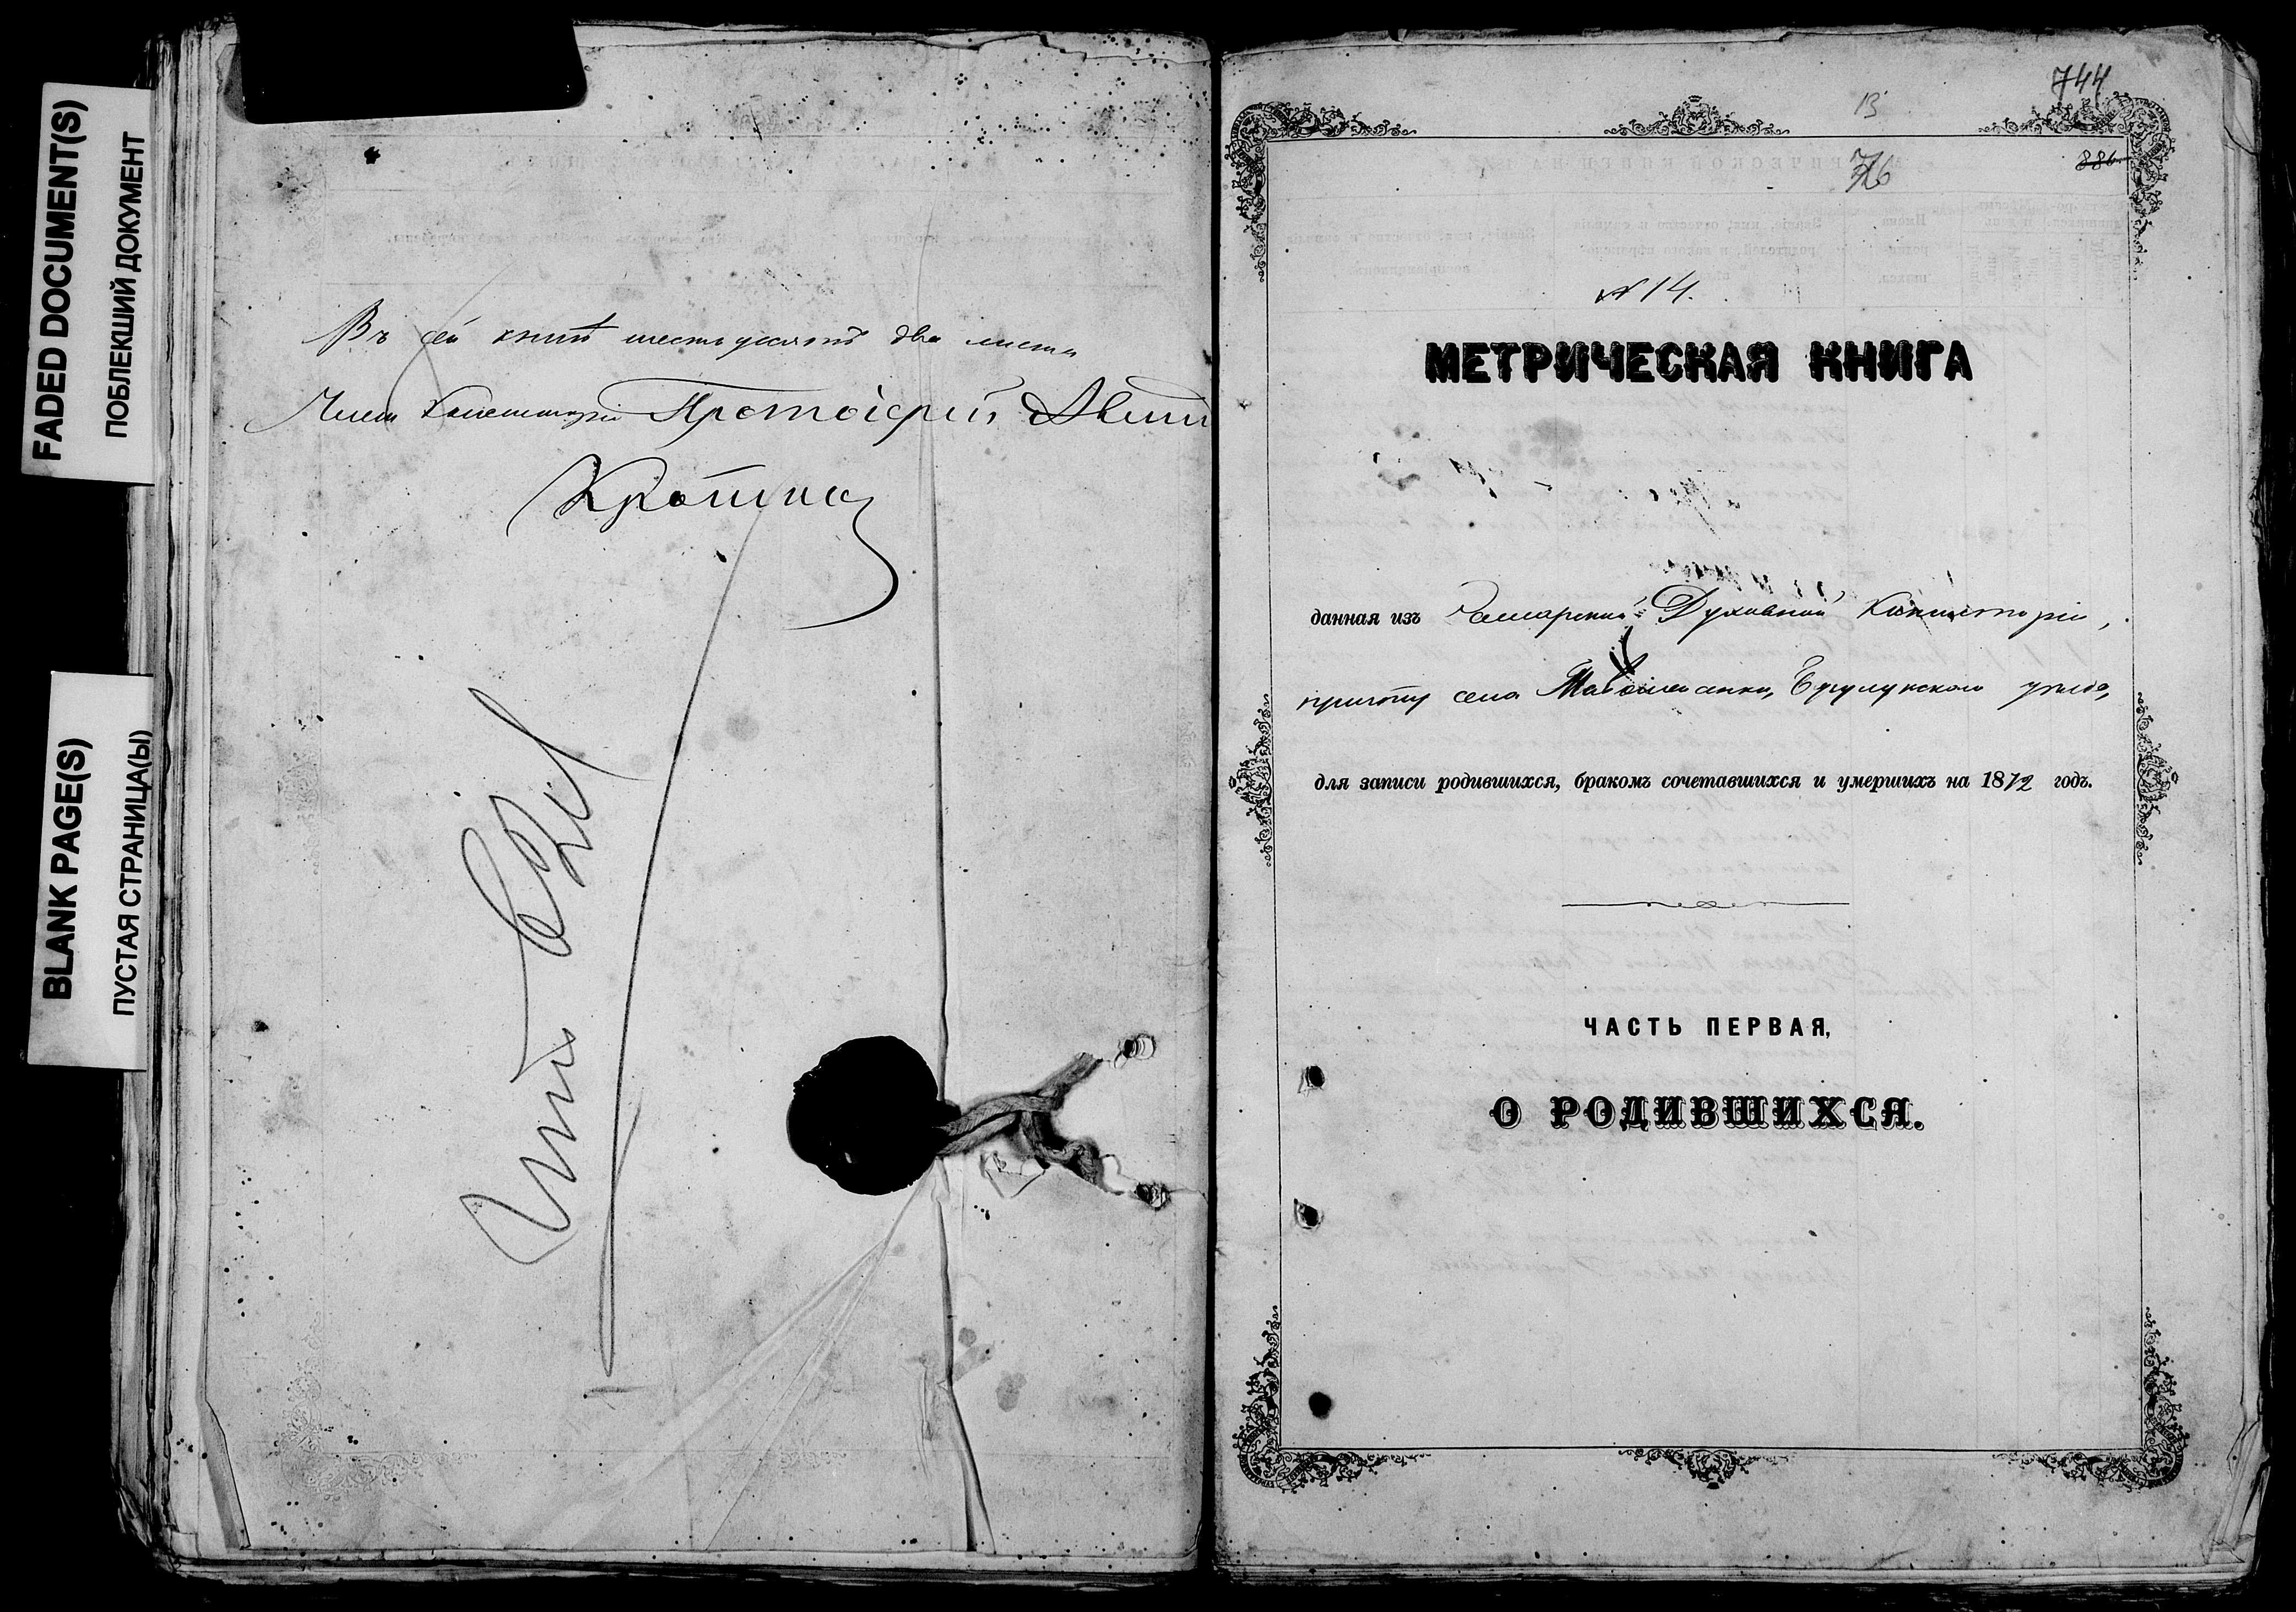 FADED DOCUMENT(S)
ПОБЛЕКШИЙ ДОКУМЕНТ
BLANK PAGE(S)
ПУСТАЯ СТРАНИЦА(Ы)
Въ сей книгѣ шестьдесятъ два листа
Членъ Консисторіи Протоіерей
744
13
886
№ 14.
МЕТРИЧЕСКАЯ КНИГА
данная изъ Самарской Духовной Консисторіи,
причту села Бузулукскаго уѣзда,
для записи родившихся, бракомъ сочетавшихся и умершихъ на 1872 годъ.
ЧАСТЬ ПЕРВАЯ,
О РОДИВШИХСЯ.